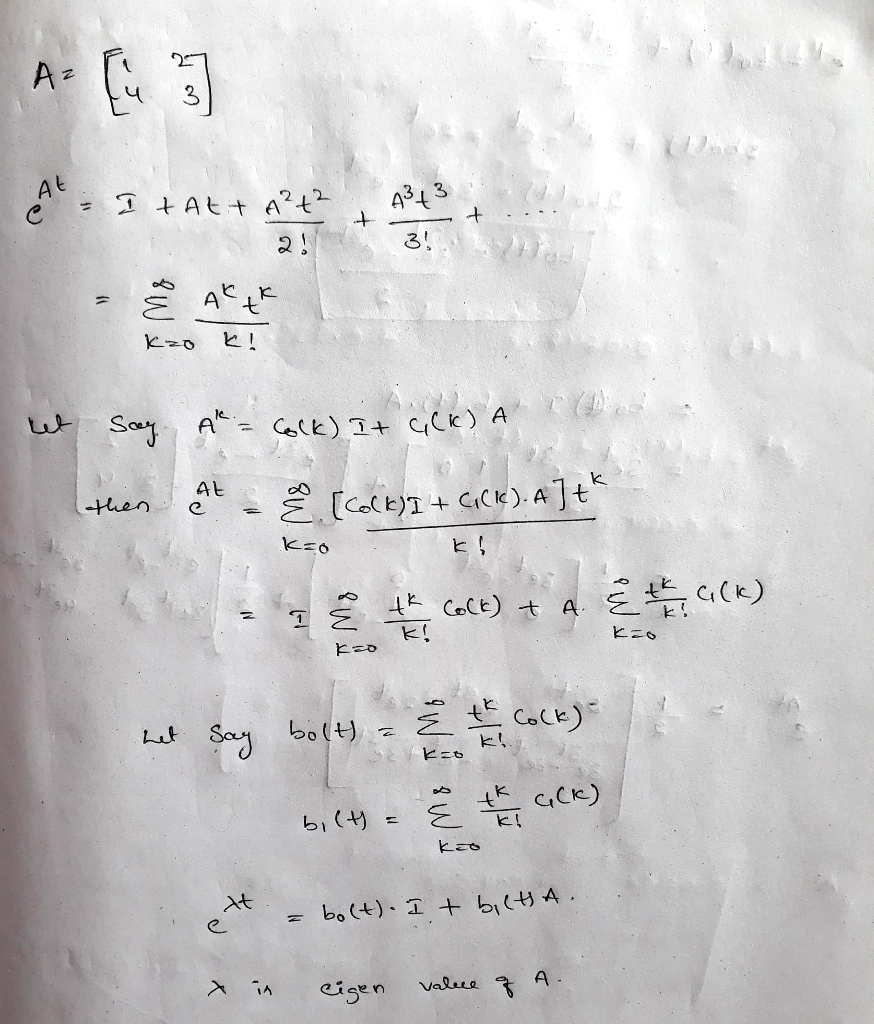 A = [1 2
4 3]
e^{At} = I + At + A²t²/2! + A³t³/3! + ....
= Σ_{k=0}^{∞} A^k t^k / k!
Let Say A^k = C₀(k) I + C₁(k) A
then e^{At} = Σ_{k=0}^{∞} [C₀(k)I + C₁(k).A] t^k / k!
= I Σ_{k=0}^{∞} t^k/k! C₀(k) + A. Σ_{k=0}^{∞} t^k/k! C₁(k)
Let Say b₀(t) = Σ_{k=0}^{∞} t^k/k! C₀(k)
b₁(t) = Σ_{k=0}^{∞} t^k/k! C₁(k)
e^{λt} = b₀(t). I + b₁(t) A.
λ is eigen value of A.